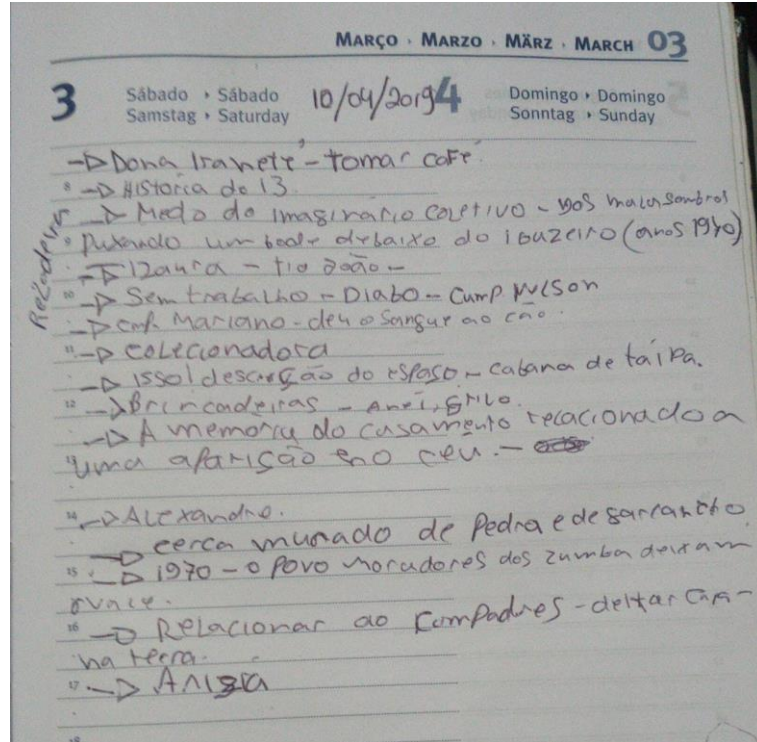 MARÇO · MARZO · MÄRZ · MARCH 03
3 Sábado · Sábado 10/04/2019 4 Domingo · Domingo
Samstag · Saturday Sonntag · Sunday
→ Dona Iranete - tomar café.
8 → Historia do 13
→ Medo do imaginário coletivo - dos malassombros
9 Puxando um bode debaixo do (anos 1970)
Rezadeiras
→ Izaura - tio João -
10 → Sem trabalho - Diabo - Cump Nilson
→ Cmp. Mariano - deu o Sangue ao cão.
11 → colecionadora
→ Isso descrição do espaso - cabana de taipa.
12 → Brincadeiras - Anel, grilo.
→ A memoria do casamento relacionado a
13 uma aparisão no ceu. -
14 → Alexandre.
→ cerca murado de Pedra e de
15 → 1970 - o povo moradores dos zumba deixam
16 → Relacionar ao Compadres - deitar
na terra.
17 →
18